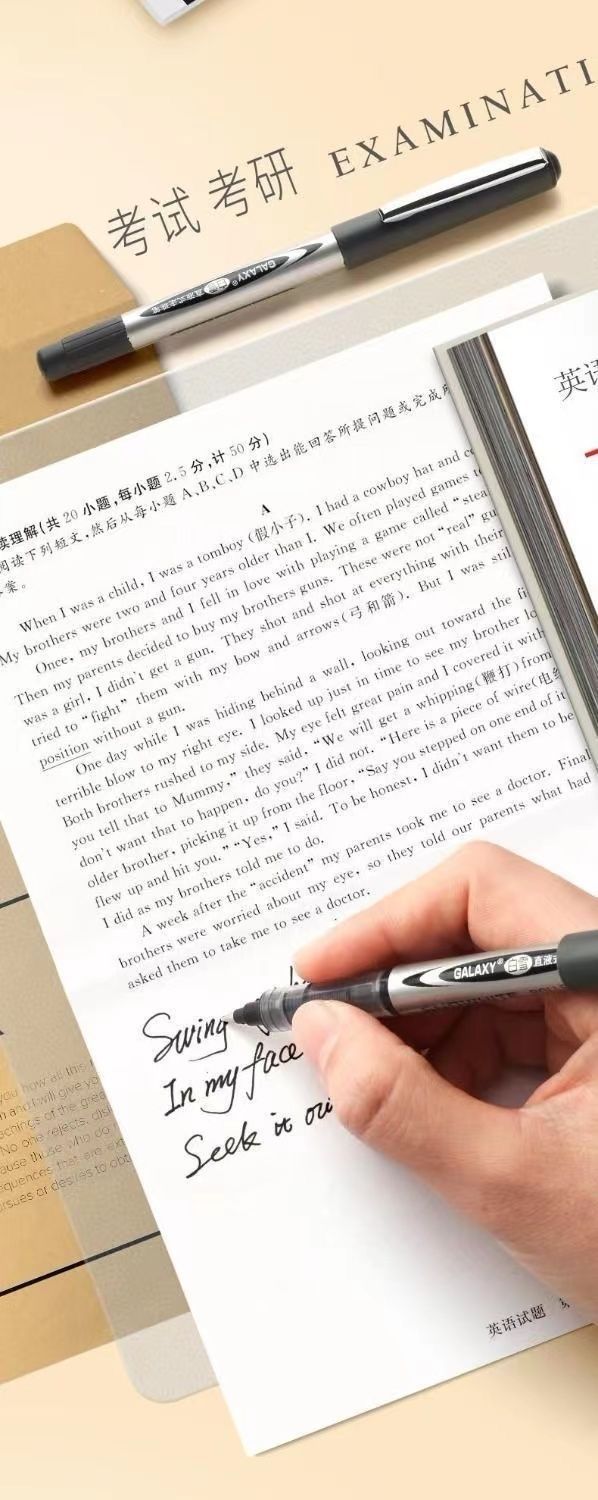 考试 考研 EXAMINATI
GALAXY® 白雪 直液式走珠笔
英语
读理解(共 20 小题,每小题 2.5 分,计 50 分)
阅读下列短文,然后从每小题 A、B、C、D 中选出能回答所提问题或完成所
答案。
A
When I was a child, I was a tomboy (假小子). I had a cowboy hat and co
My brothers were two and four years older than I. We often played games to
Once, my brothers and I fell in love with playing a game called "steal
Then my parents decided to buy my brothers guns. These were not "real" gu
was a girl, I didn't get a gun. They shot and shot at everything with their
tried to "fight" them with my bow and arrows (弓和箭). But I was still
position without a gun.
One day while I was hiding behind a wall, looking out toward the fi
terrible blow to my right eye. I looked up just in time to see my brother lo
Both brothers rushed to my side. My eye felt great pain and I covered it with
you tell that to Mummy," they said, "We will get a whipping(鞭打) from
don't want that to happen, do you?" I did not. "Here is a piece of wire(电线
older brother, picking it up from the floor, "Say you stepped on one end of it
flew up and hit you." "Yes," I said. To be honest, I didn't want them to be
I did as my brothers told me to do.
A week after the "accident" my parents took me to see a doctor. Final
brothers were worried about my eye, so they told our parents what had
asked them to take me to see a doctor.
GALAXY® 白雪 直液式
Swing
In my face
Seek it ou
you how all this
n and I will give you
achings of the grea
No one rejects, disl
ause those who do
equences that are ex
rsues or desires to obt
英语试题